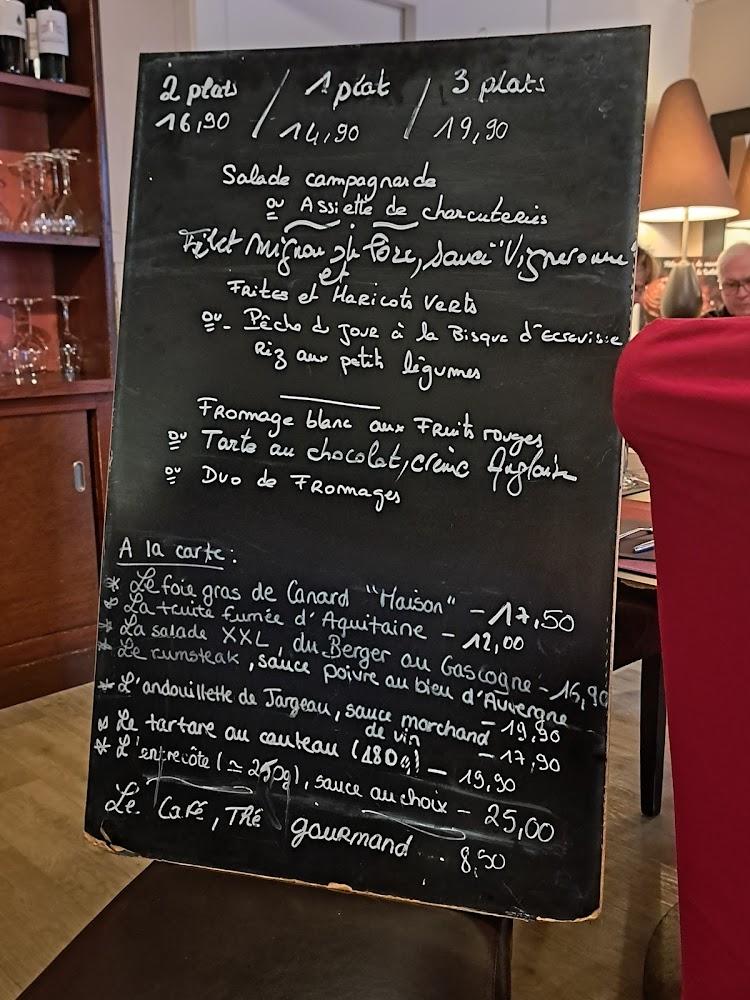 2 plats / 1 plat / 3 plats
16,90 / 14,90 / 19,90
Salade campagnarde
ou Assiette de charcuteries
Filet Mignon de Porc, sauce "Vigneronne"
et
Frites et Haricots Verts
ou - Pêche du Jour à la Bisque d'Ecrevisse
Riz aux petits légumes
Fromage blanc aux Fruits rouges
ou Tarte au chocolat, crème Anglaise
ou Duo de Fromages
A la carte :
* Le foie gras de Canard "Maison" - 17,50
* La truite fumée d'Aquitaine - 12,00
* La salade XXL, du Berger ou Gascogne - 16,90
* Le rumsteak, sauce poivre ou bleu d'Auvergne
- 19,90
* L'andouillette de Jargeau, sauce marchand
de vin - 17,90
* Le tartare au couteau (180g) - 19,90
* L'entrecôte (≃ 250g), sauce au choix - 25,00
Le Café, Thé gourmand ... 8,50